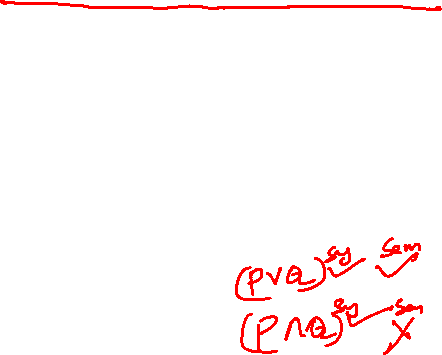 (P∨Q) sy ✓ sem ✓
(P∧Q) sy ✓ sem ✗